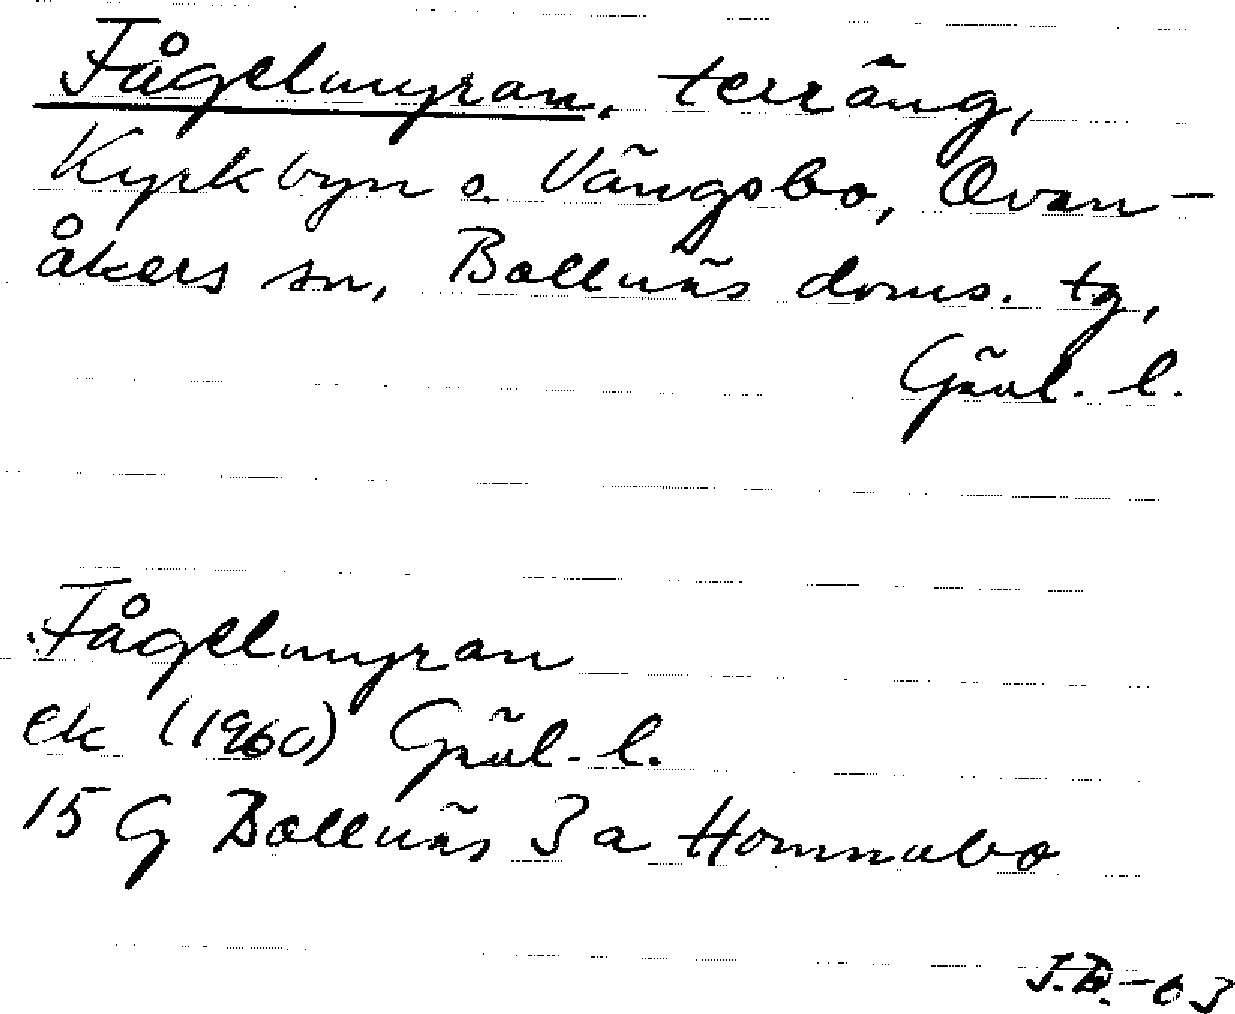 Fågelmyran, terräng,
Kyrkbyn o. Vängsbo, Ovan-
åkers sn, Bollnäs doms. tg,
Gävl. l.
Fågelmyran
ek (1960) Gävl. l.
15 G Bollnäs 3 a Homnabo
-63